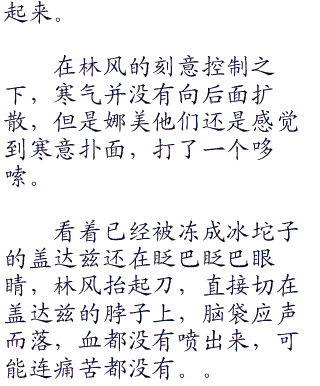 起来。
在林风的刻意控制之
下，寒气并没有向后面扩
散，但是娜美他们还是感觉
到寒意扑面，打了一个哆
嗦。
看着已经被冻成冰坨子
的盖达兹还在眨巴眨巴眼
睛，林风抬起刀，直接切在
盖达兹的脖子上，脑袋应声
而落，血都没有喷出来，可
能连痛苦都没有。。